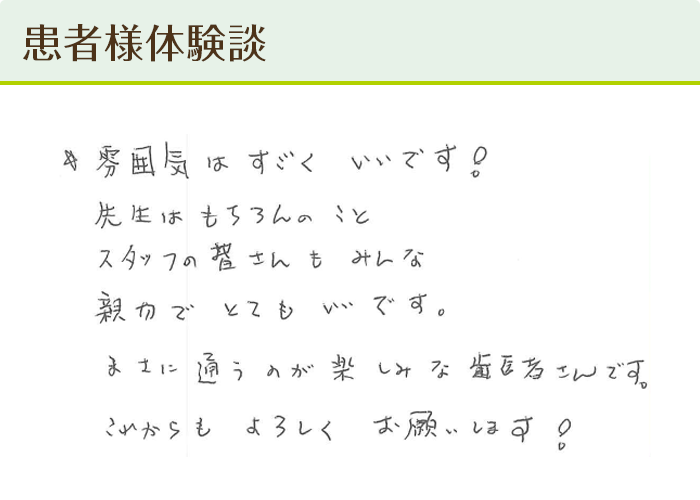 患者様体験談
* 雰囲気は すごく いいです!
先生は もちろんの こと
スタッフの 皆さんも みんな
親切で とても いいです。
まさに 通うのが 楽しみな 歯医者さんです。
これからも よろしく お願いします!